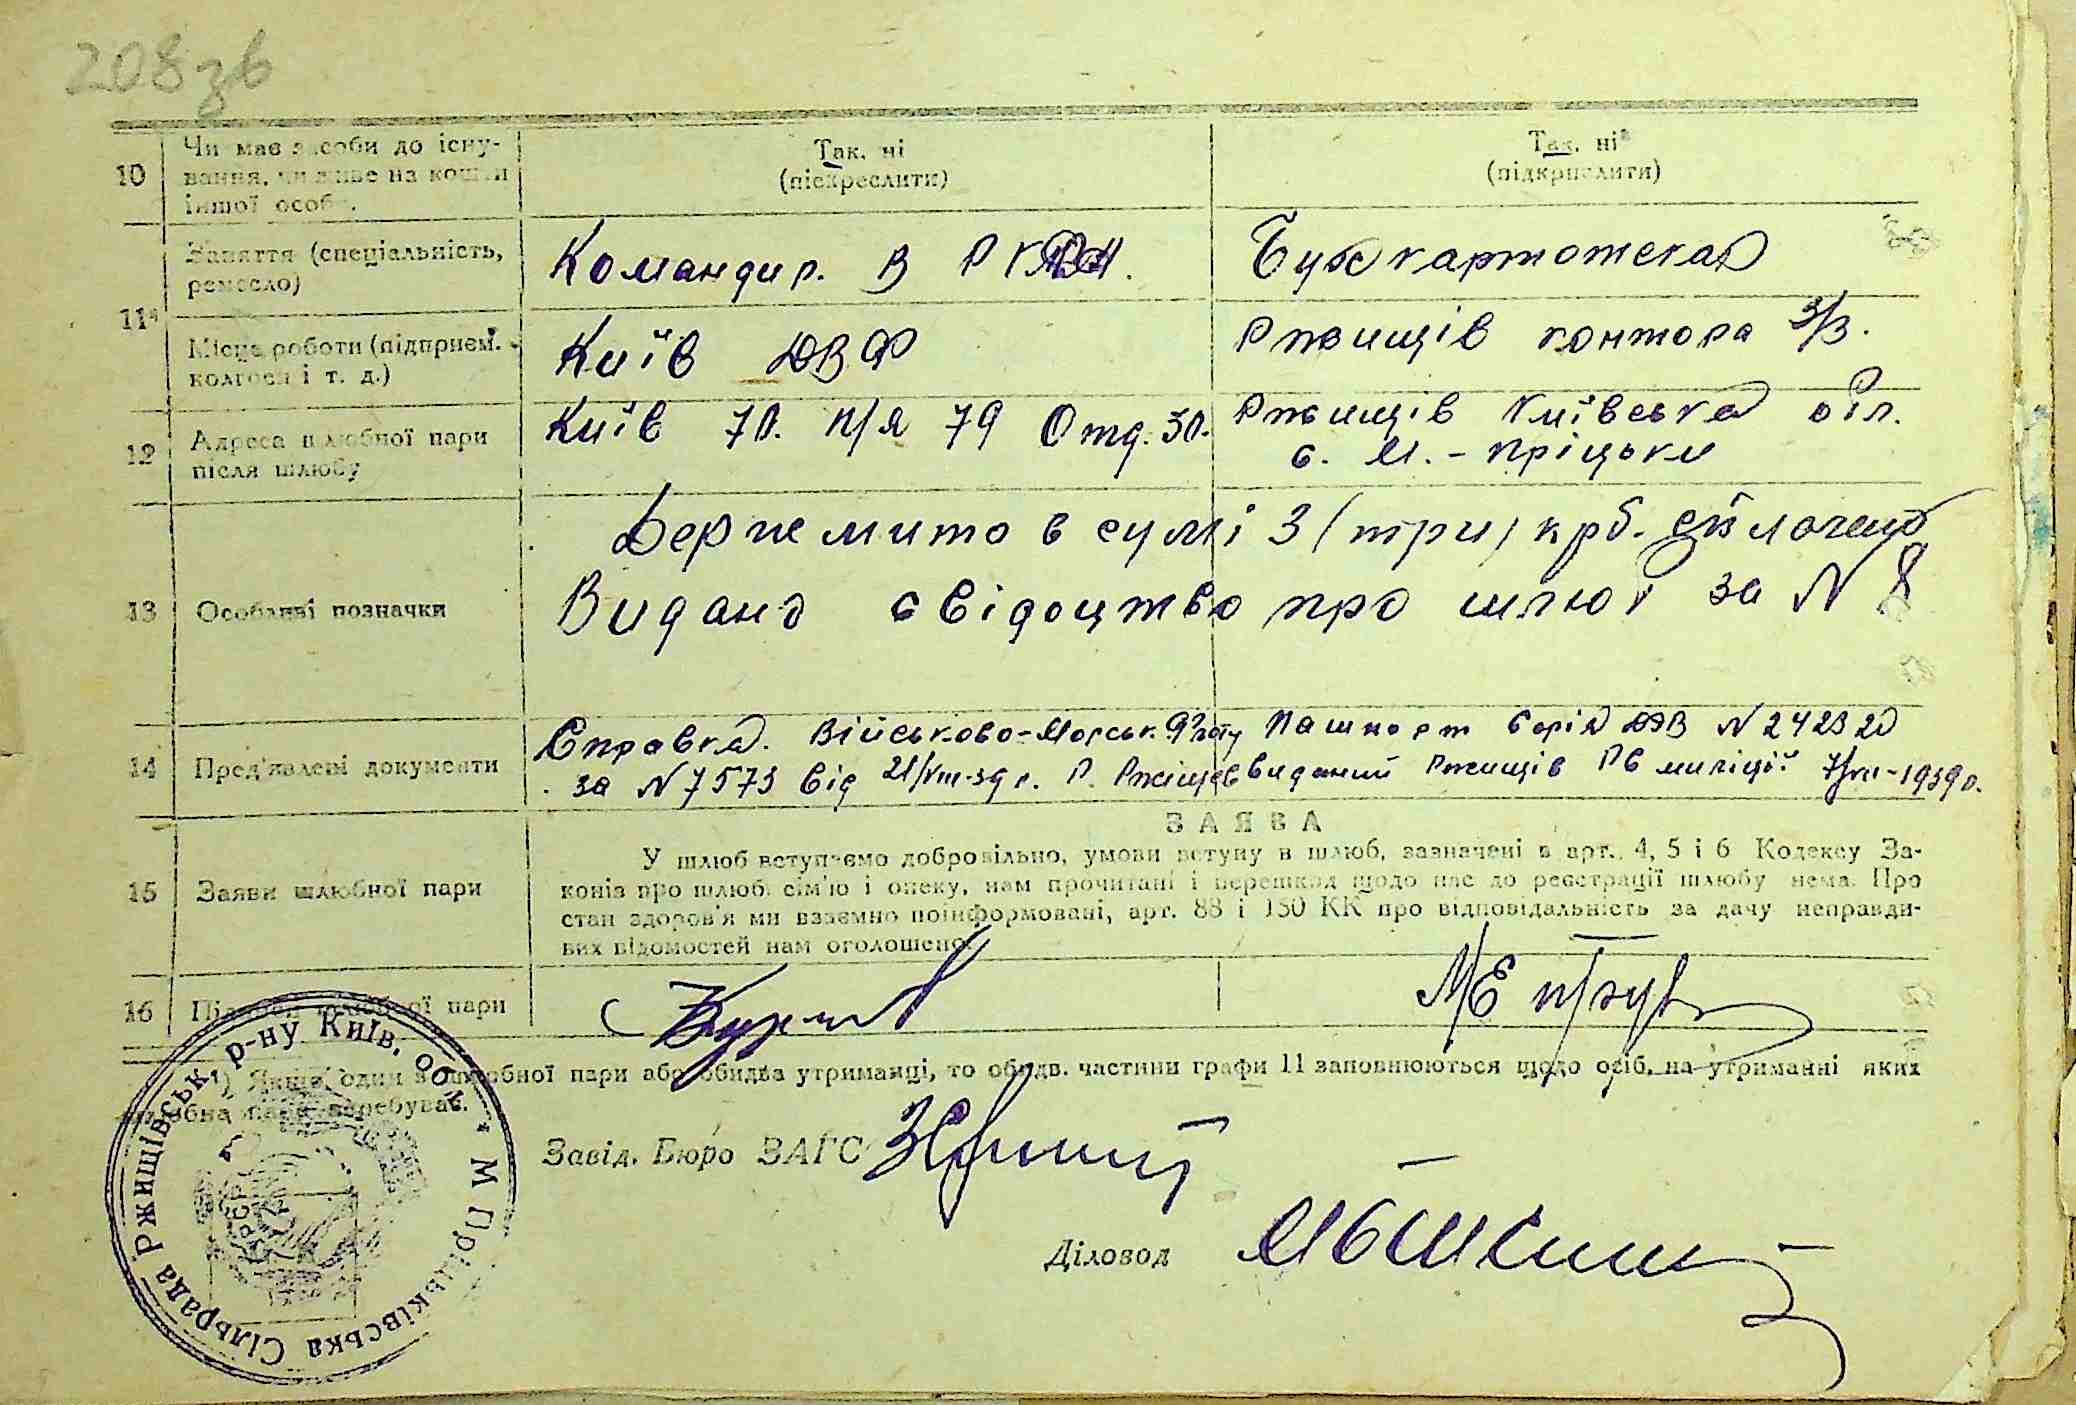 208 зв
10 Чи має засоби до існу-
вання, чи живе на кошти
іншої особи.
Так. ні
(підкреслити)
Так. ні
(підкреслити)
11
Заняття (спеціальність,
ремесло)
Командир. в
Місце роботи (підприєм.
колгосп і т. д.)
Київ ДВФ
Ржищів контора з/з.
12 Адреса шлюбної пари
після шлюбу
Київ 70. п/я 79 Отд. 30.
Ржищів Київська обл.
с. М.-Пріцьки
13 Особливі позначки
Держмито в сумі 3 (три) крб. сплочено
Видано свідоцтво про шлюб за N 8
14 Пред'явлені документи
Справка. Військово-Морськ. Флоту
за N 7573 від 21/VIII-39 р.
Пашпорт серія N 242320
виданий Ржищів РВ міліції 7/VII-1939р.
15 Заяви шлюбної пари
ЗАЯВА
У шлюб вступаємо добровільно, умови вступу в шлюб, зазначені в арт. 4, 5 і 6 Кодексу За-
конів про шлюб, сім'ю і опеку, нам прочитані і перешкод щодо нас до реєстрації шлюбу нема. Про
стан здоров'я ми взаємно поінформовані, арт. 88 і 130 КК про відповідальність за дачу неправди-
вих відомостей нам оголошено.
16 Підписи шлюбної пари
¹) Якщо один з шлюбної пари або обидва утриманці, то обидв. частини графи 11 заповнюються щодо осіб, на утриманні яких
шлюбна пара перебуває.
Завід. Бюро ЗАГС
Діловод
М Пріцьківська Сільрада Ржищівськ. р-ну Київ. обл.
УРСР